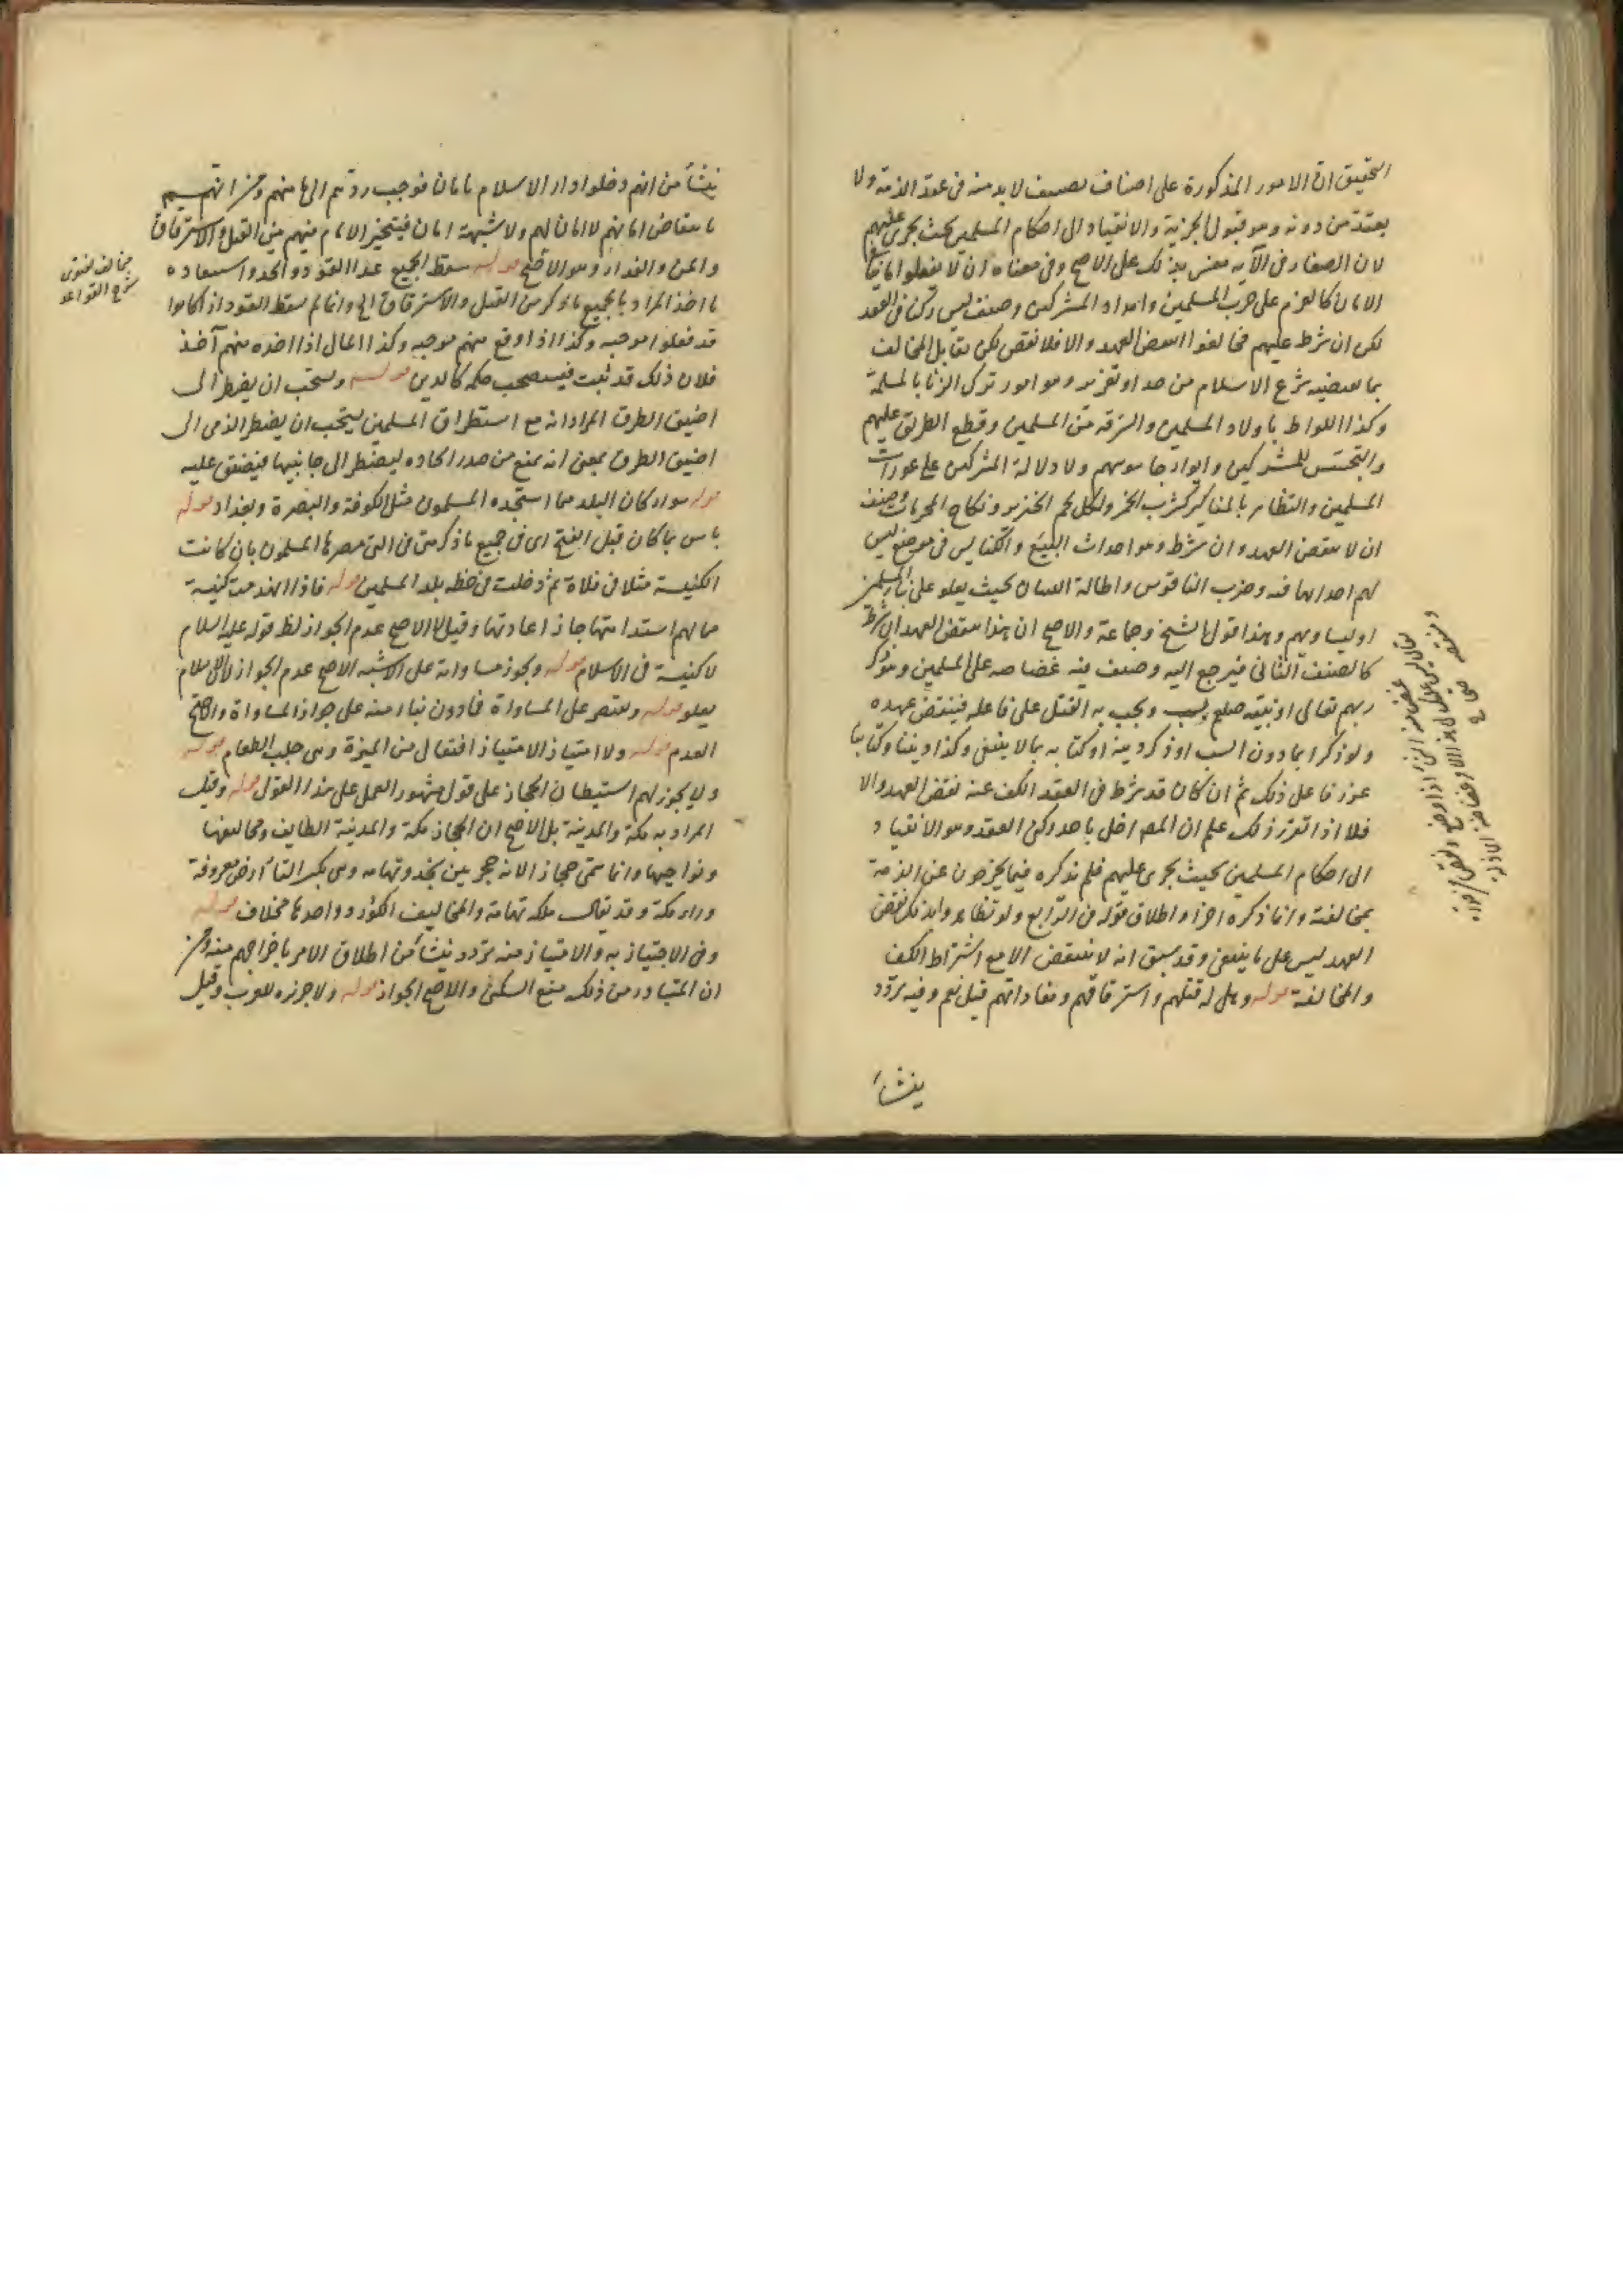 التحقيق ان الامور المذكورة على اصناف صنف لا بد منه فى عقد الذمة ولا
يعتد من دونه وهو قبول الجزية والانقياد الى احكام المسلمين بحيث يجرى عليهم
لان الصغار فى الآية مفسر بذلك على الاصح وفى معناه ان لا يفعلوا ما ينافى
الامان كالعزم على حرب المسلمين وامداد المشركين وصنف ليس ركنا فى العقد
لكن ان شرط عليهم فخالفوا انتقض العهد والا فلا نقض لكن يقابل المخالف
بما يقتضيه شرع الاسلام من حد او تعزير وهو امور ترك الزنا بالمسلمة
وكذا اللواط باولاد المسلمين والسرقة من المسلمين وقطع الطريق عليهم
والتجسس للمشركين وايواء جاسوسهم ولا دلالة المشركين على عورات
المسلمين والتظاهر بالمناكير كشرب الخمر واكل لحم الخنزير ونكاح المحرمات وصنف
ان لا ينقض العهد وان شرط وهو احداث البيع والكنايس فى موضع ليس
لهم احداثها فيه وضرب الناقوس واطالة البنيان بحيث يعلو على بناء المسلمين
او يساويهم وهذا قول الشيخ وجماعة والاصح ان هذا ينقض العهد ان شرط
كالصنف الثانى فيرجع اليه وصنف فيه غضاضة على المسلمين وهو ذكر
ربهم تعالى او نبيه صلع بسب ويجب به القتل على فاعله فينتقض عهده
ولو ذكرا بما دون السب او ذكر دينه او كتابه بما لا ينبغى وكذا ديننا وكتابنا
عزر فاعل ذلك ثم ان كان قد شرط فى العقد الكف عنه نقض العهد والا
فلا اذا تقرر ذلك علم ان المص اخل باحد ركنى العقد وهو الانقياد
الى احكام المسلمين بحيث يجرى عليهم فلم يذكره فيما يخرجون عن الذمة
بمخالفته وانما ذكره اخرا واطلاق قوله فى الرابع ولو تظاهروا بذلك نقض
العهد ليس على ما ينبغى وقد سبق انه لا ينتقض الا مع اشتراط الكف
والمخالفة قوله وهل له قتلهم واسترقاقهم ومفاداتهم قيل نعم وفيه تردد
ينشأ
ينشأ من انهم دخلوا دار الاسلام بامان فوجب ردهم الى مامنهم ومن انهم
بانتقاض امانهم لا امان لهم ولا شبهة امان فيتخير الامام فيهم بين القتل والاسترقاق
والمن والفداء وهو الاصح قوله سقط الجميع عدا القود والحد واستعادة
ما اخذ المراد بالجميع ما ذكر من القتل والاسترقاق الخ وانما لم يسقط القود اذا كانوا
قد فعلوا موجبه وكذا اذا وقع منهم موجبه وكذا المال اذا اخذه منهم آخذ
فلان ذلك قد ثبت فيستصحب حكمه كالدين قوله ويستحب ان يضطر الى
اضيق الطرق المراد انه مع استطراق المسلمين يستحب ان يضطر الذمى الى
اضيق الطرق بمعنى انه يمنع من صدر الجادة ليضطر الى جانبيها فيضيق عليه
قوله سواء كان البلد مما استجده المسلمون مثل الكوفة والبصرة وبغداد قوله
باس بما كان قبل الفتح اى فى جميع ما ذكر حتى فى التى مصرها المسلمون بان كانت
الكنيسة مثلا فى فلاة ثم دخلت فى خطه بلد المسلمين قوله فاذا انهدمت كنيسة
مما لهم استدامتها جاز اعادتها وقيل لا الاصح عدم الجواز لظ قوله عليه السلام
لا كنيسة فى الاسلام قوله ويجوز مساواته على الاشبه الاصح عدم الجواز لان الاسلام
يعلو قوله ويقتصر على المساواة فما دون بناء منه على جواز المساواة والاصح
العدم قوله ولا امتياز الامتياز افتعال من الميرة وهى جلب الطعام قوله
ولا يجوز لهم استيطان الحجاز على قول مشهور العمل على هذا القول قوله وقيل
المراد به مكة والمدينة بل الاصح ان الحجاز مكة والمدينة الطايف ومخاليفها
ونواحيها وانما سمى حجازا لانه حجز بين نجد وتهامة وهى بكسر التاء ارض معروفة
وراء مكة وقد يقال مكة تهامة والمخاليف الكور وواحدها مخلاف قوله
وفى الاجتياز به والامتياز منه تردد ينشأ من اطلاق الامر باخراجهم منه ومن
ان المتبادر من ذلك منع السكنى والاصح الجواز قوله ولا جزيره للعرب وقيل
مخالف لفتوى
شرح القواعد